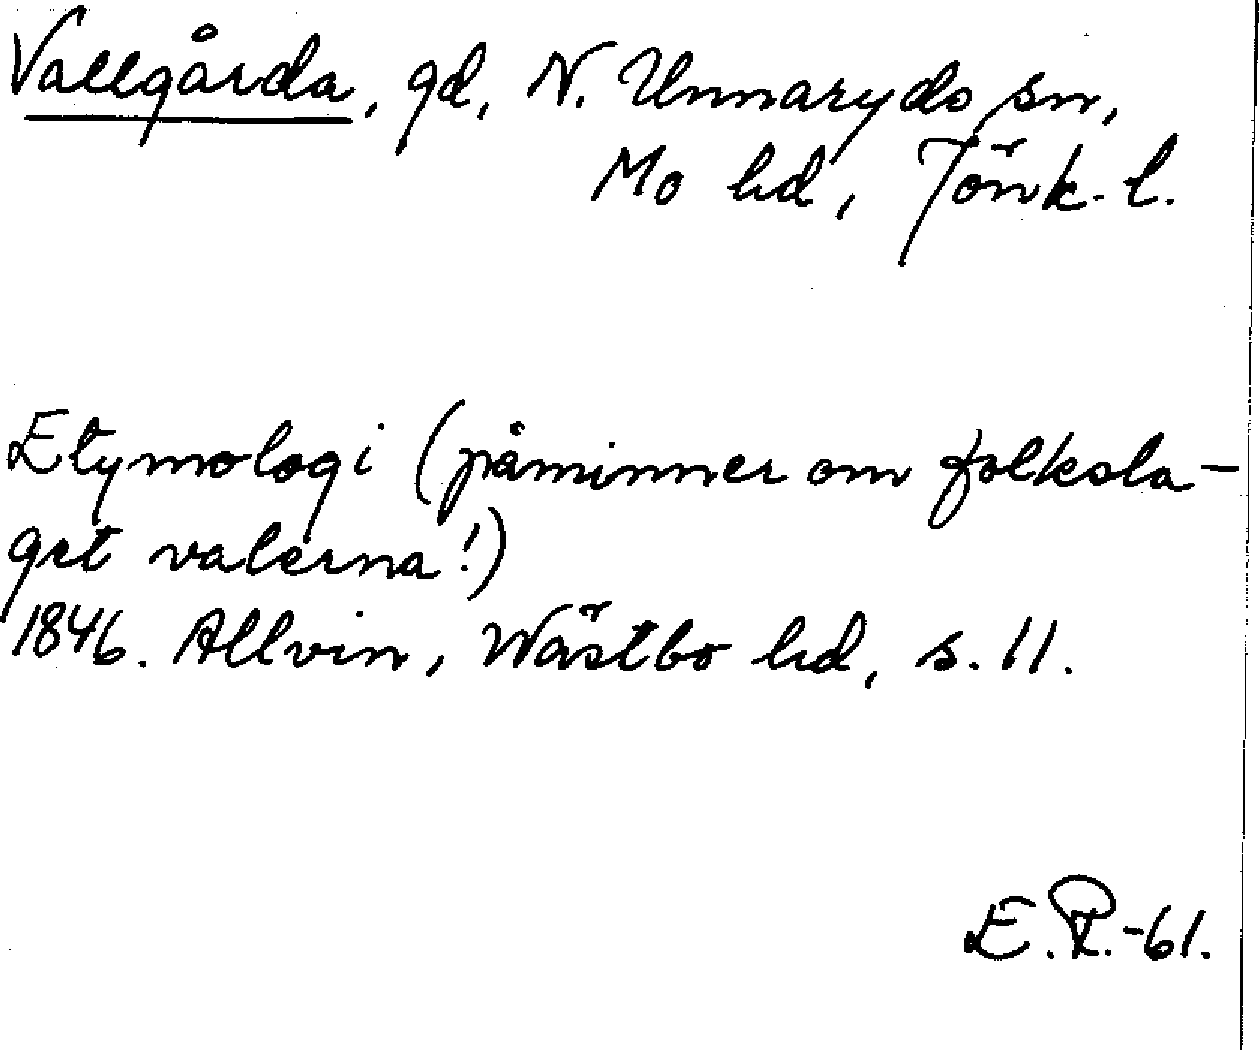 Vallgårda, gd, N. Unnaryds sn,
Mo hd, Jönk. l.
Etymologi (påminner om folksla-
get valerna!)
1846. Allvin, Wästbo hd, s. 11.
E. R. -61.